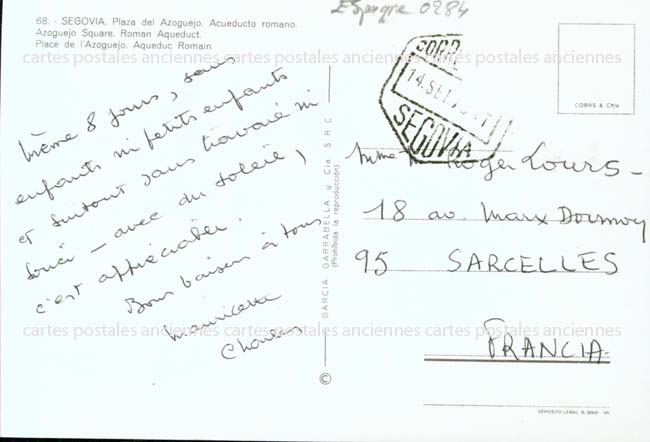 Espagne 0284
68. - SEGOVIA. Plaza del Azoguejo. Acueducto romano.
Azoguejo Square. Roman Aqueduct.
Place de l'Azoguejo. Aqueduc Romain
cartes postales anciennes cartes postales anciennes cartes postales anciennes
même 8 jours, sans
enfants ni petits enfants
et surtout sans travail ni
souci - avec du soleil,
c'est appréciable.
Bons baisers à tous
Mauricette
Charles
GARCIA GARRABELLA y Cia S.R.C.
(Prohibida la reproducción)
©
CORR
14.SET
SEGOVIA
COBAS & Cía
Mme Roger Lours -
18 av. Marx Dormoy
95 SARCELLES
FRANCIA
cartes postales anciennes cartes postales anciennes cartes postales anciennes
DEPOSITO LEGAL B.